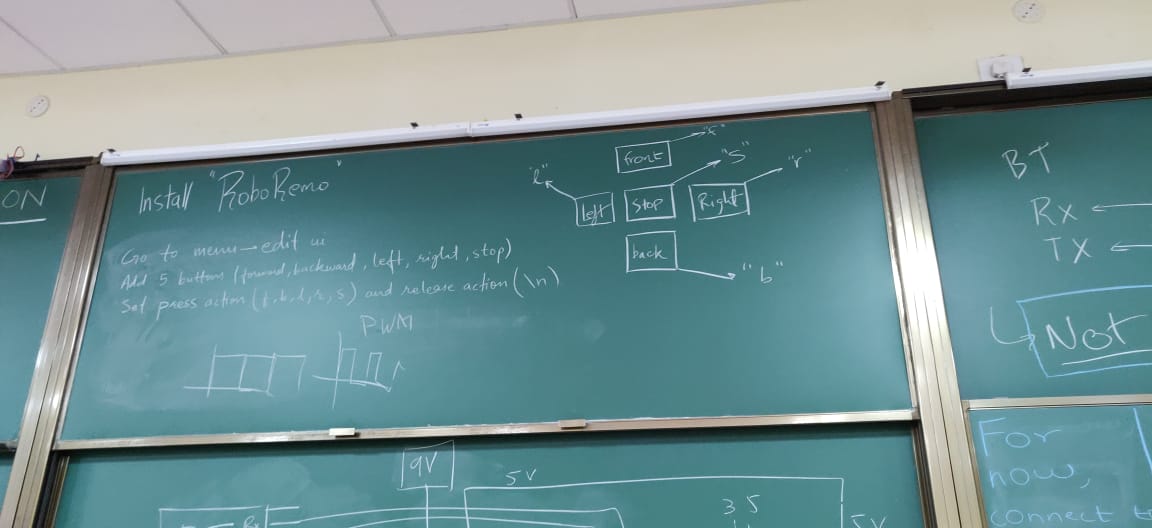 ON
Install "RoboRemo"
Go to menu → edit ui
Add 5 buttons (forward, backward, left, right, stop)
Set press action (f, b, l, r, s) and release action (\n)
PWM
"f"
front
"l"
"S"
"r"
left
Stop
Right
back
"b"
BT
Rx
TX
Not
For
now,
connect
9V
5V
Rx
35
5V